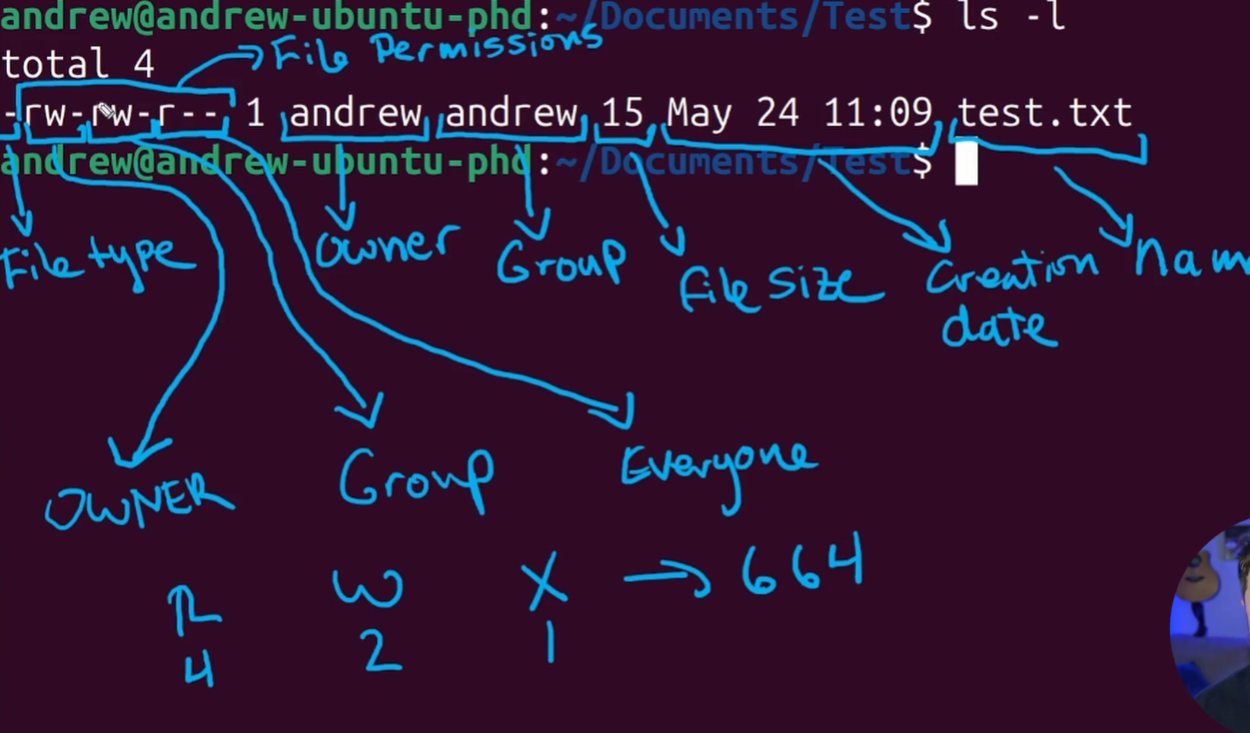 andrew@andrew-ubuntu-phd:~/Documents/Test$ ls -l
File Permissions
total 4
-rw-rw-r-- 1 andrew andrew 15 May 24 11:09 test.txt
andrew@andrew-ubuntu-phd:~/Documents/Test$
File type
Owner
Group
File Size
Creation date
nam
OWNER
Group
Everyone
R W X → 664
4 2 1